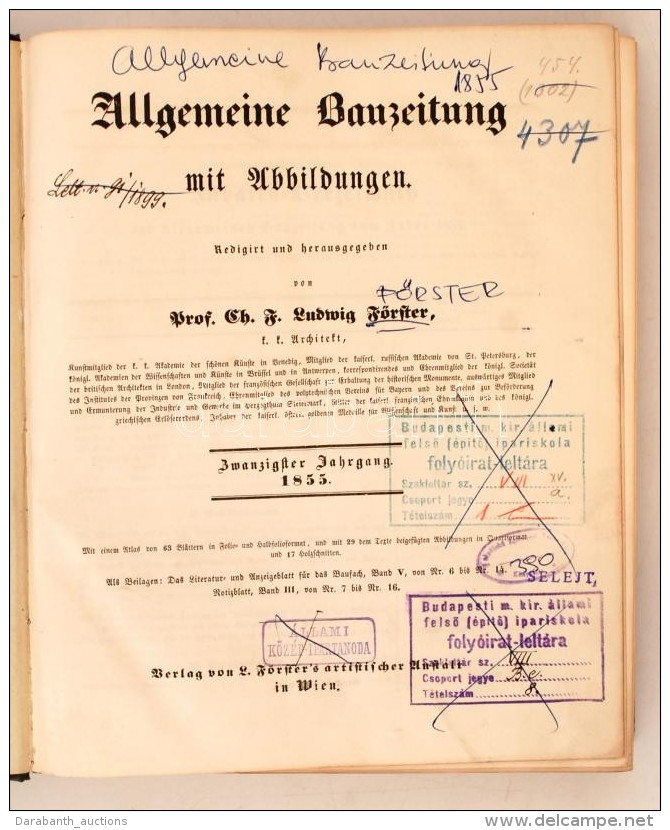 Allgemeine Bauzeitung
1855
454.
(1002)
4307
Allgemeine Bauzeitung
mit Abbildungen.
Redigirt und herausgegeben
von
FÖRSTER
Prof. Ch. F. Ludwig Förster,
k. k. Architekt,
Kunstmitglied der k. k. Akademie der schönen Künste in Venedig, Mitglied der kaiserl. russischen Akademie von St. Petersburg, der
königl. Akademien der Wissenschaften und Künste in Brüssel und in Antwerpen, korrespondirendes und Ehrenmitglied der königl. Societät
der britischen Architekten in London, Mitglied der französischen Gesellschaft zur Erhaltung der historischen Monumente, auswärtiges Mitglied
des Institutes der Provinzen von Frankreich, Ehrenmitglied des polytechnischen Vereins für Bayern und des Vereins zur Beförderung
und Ermunterung der Industrie und Gewerbe im Herzogthum Steiermark, Ritter der kaiserl. französischen Ehrenlegion und des königl.
griechischen Erlöserordens, Inhaber der kaiserl. österr. goldenen Medaille für Wissenschaft und Kunst u. s. w.
Zwanzigster Jahrgang.
1855.
Budapesti m. kir. állami
felső (épitő) ipariskola
folyóirat-leltára
Szakleltár sz. VIII XV.
Csoport jegye a.
Tételszám 1.
Mit einem Atlas von 63 Blättern in Folio- und Halbfolioformat, und mit 29 dem Texte beigefügten Abbildungen in Quartformat
und 17 Holzschnitten.
Als Beilagen: Das Literatur- und Anzeigeblatt für das Baufach, Band V, von Nr. 6 bis Nr. 14.
390.
SELEJT,
Notizblatt, Band III, von Nr. 7 bis Nr. 16.
Budapesti m. kir. állami
felső (épitő) ipariskola
folyóirat-leltára
Szakleltár sz. VIII
Csoport jegye B.c.
Tételszám 8.
ÁLLAMI
KÖZÉP-IPARTANODA
Verlag von L. Förster's artistischer Anstalt
in Wien.
Darabanth_auctions
www.delcampe.net